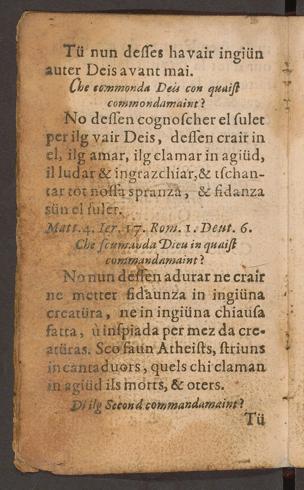 Tü nun desſes havair ingiün
auter Deis avant mai.
Che commonda Deis con quaiſt
commondamaint?
No deſſen cognoſcher el ſulet
per ilg vair Deis, deſſen crair in
el, ilg amar, ilg clamar in agiüd,
il ludar & ingrazchiar, & tſchan-
tar tot noſſa spranza, & fidanza
sün el ſuler.
Matt. 4. Ier. 17. Rom. 1. Deut. 6.
Che ſcumanda Dieu in quaiſt
commandamaint?
No nun deſſen adurar ne crair
ne metter fidaunza in ingiüna
creatüra, ne in ingiüna chiauſa
fatta, ù inſpiada per mez da cre-
atüras. Sco faun Atheiſts, ſtriuns
incantaduors, quels chi claman
in agiüd ils morts, & oters.
Di ilg Second commandamaint?
Tü